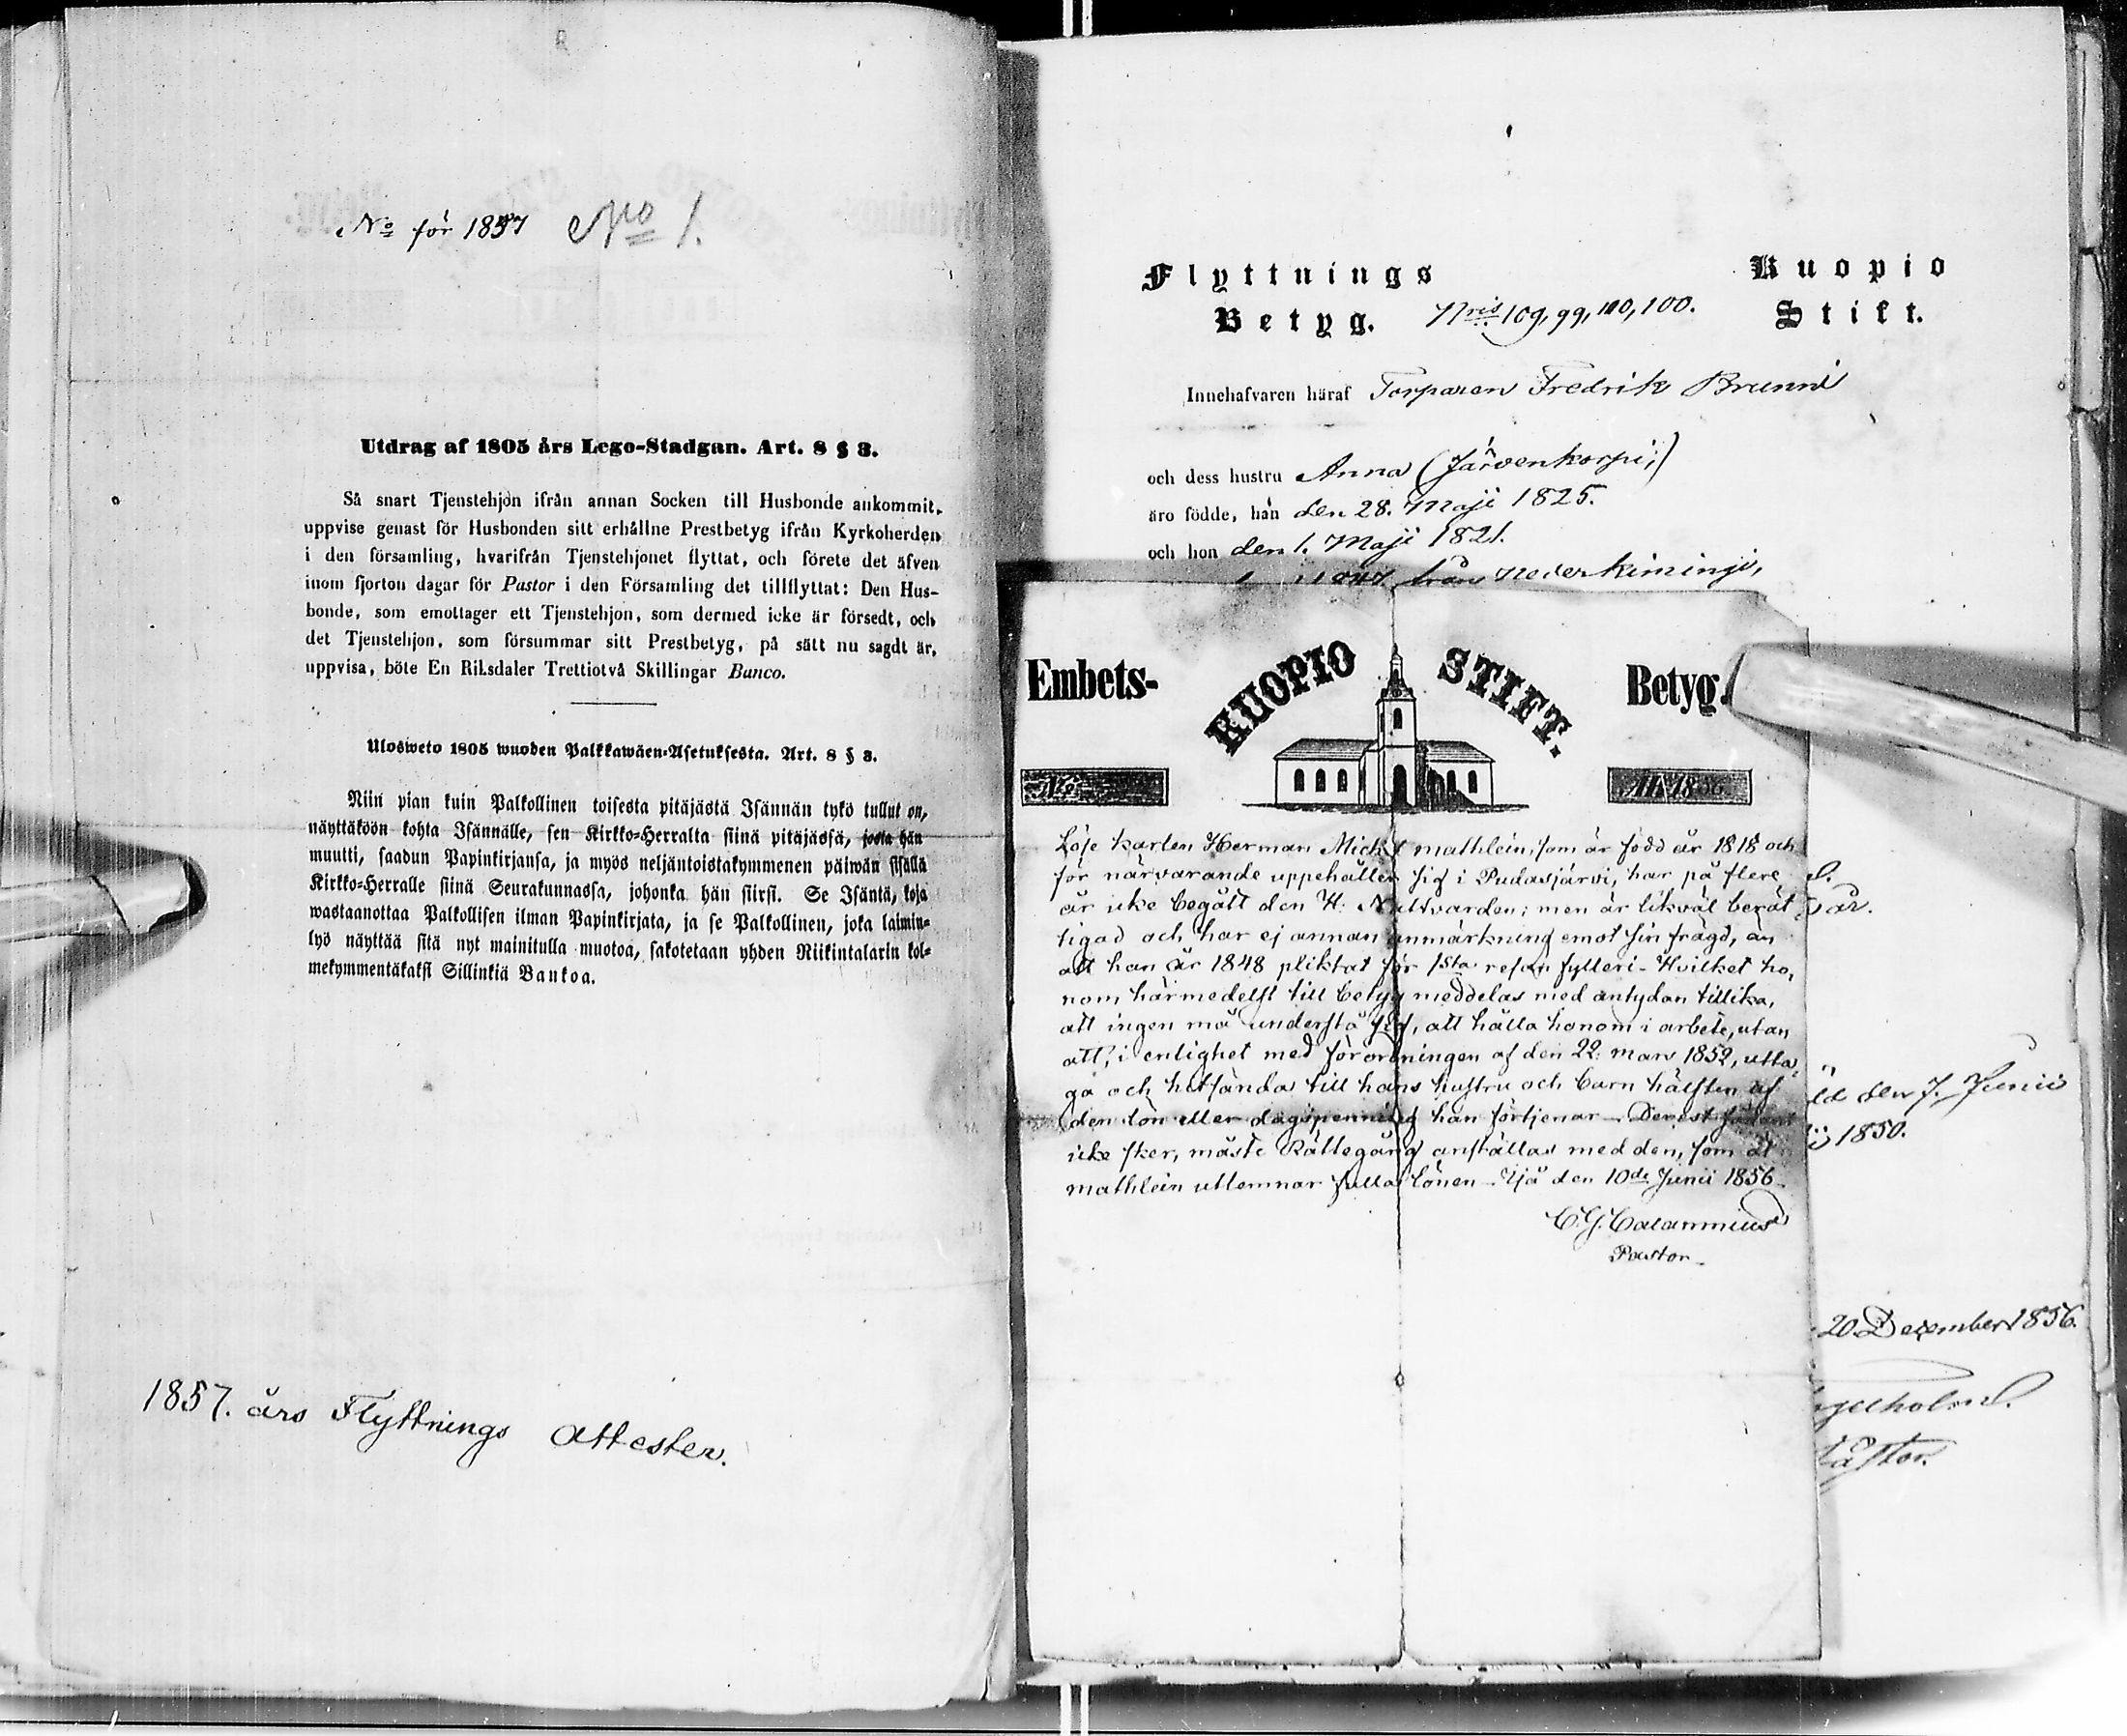 No för 1857 No 1.
Utdrag af 1805 års Lego-Stadgan. Art. 8 § 3.
Så snart Tjenstehjon ifrån annan Socken till Husbonde ankommit,
uppvise genast för Husbonden sitt erhållne Prestbetyg ifrån Kyrkoherden
i den församling, hvarifrån Tjenstehjonet flyttat, och förete det äfven
inom fjorton dagar för Pastor i den Församling det tillflyttat: Den Hus-
bonde, som emottager ett Tjenstehjon, som dermed icke är försedt, och
det Tjenstehjon, som försummar sitt Prestbetyg, på sätt nu sagdt är,
uppvisa, böte En Riksdaler Trettiotvå Skillingar Banco.
Ulosweto 1805 wuoden Palkkawäen-Asetuksesta. Art. 8 § 3.
Niin pian kuin Palkollinen toisesta pitäjästä Isännän tykö tullut on,
näyttäköön kohta Isännälle, sen Kirkko-Herralta siinä pitäjässä, josta hän
muutti, saadun Papinkirjansa, ja myös neljäntoistakymmenen päiwän sisällä
Kirkko-Herralle siinä Seurakunnassa, johonka hän siirsi. Se Isäntä, koja
wastaanottaa Palkollisen ilman Papinkirjata, ja se Palkollinen, joka laimin-
lyö näyttää sitä nyt mainitulla muotoa, sakotetaan yhden Riikintalarin kol-
mekymmentäkaksi Sillinkiä Bankoa.
1857. års Flyttnings Attester.
Flyttnings
Betyg. Nris 109, 99, 110, 100.
Kuopio
Stift.
Innehafvaren häraf Torparen Fredrik Brunni
och dess hustru Anna (Järvenkorpi;)
äro födde, han den 28. Maji 1825.
och hon den 1. Maji 1821.
från Nederkiminge,
Embets- KUOPIO STIFT. Betyg.
No
År 1856
Löje karlen Herman Mickel mathlein, som är född år 1818 och
för närvarande uppehåller sig i Pudasjärvi, har på flere
år icke begått den H. Nattvarden; men är likväl berät
tigad och har ej annan anmärkning emot sin frägd, än
att han år 1848 pliktat för 1sta resan fylleri - Hvilket ho,
nom härmedelst till betyg meddelas med antydan tillika,
att ingen må understå sig, att hålla honom i arbete, utan
att, i enlighet med förordningen af den 22. mars 1852, utta,
ga och hitsända till hans hustru och barn hälften af
den lön eller dagspenning han förtjenar - Derest sådant
icke sker, måste Rättegång anställas med den, som åt
mathlein utlemnar fulla lönen - Ijå den 10de Junii 1856
C.G. Calamnius
Pastor
år.
den 7. Junii
1850.
20 December 1856.